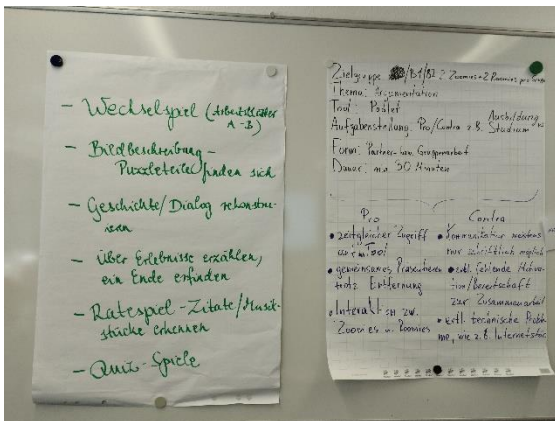 - Wechselspiel (Arbeitsblätter
A-B)
- Bildbeschreibung -
Puzzleteile finden sich
- Geschichte/Dialog rekonstru-
ieren
- Über Erlebnisse erzählen,
ein Ende erfinden
- Ratespiel - Zitate/Musik-
stücke erkennen
- Quiz-Spiele
Zielgruppe /B1/B2 2 Zoomies + 2 Roomies
Thema: Argumentation
Tool: Padlet
Aufgabenstellung: Pro/Contra z.B. Ausbildung vs
Studium
Form: Partner- bzw. Gruppenarbeit
Dauer: 30 Minuten
Pro
• zeitgleicher Zugriff
• gemeinsames Präsentieren
trotz Entfernung
• Interaktion zw.
Zoomies u. Roomies
Contra
• Kommunikation meistens
nur schriftlich möglich
• evtl. fehlende Motiva-
tion/Bereitschaft
zur Zusammenarbeit
• evtl. technische Proble-
me, wie z.B. Internet